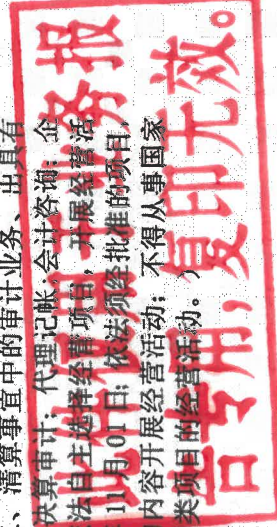 、清算事宜中的审计业务、出具有
决算审计；代理记帐；会计咨询；企
法自主选择经营项目，开展经营活
11月01日；依法须经批准的项目，
内容开展经营活动；不得从事国家
类项目的经营活动。）
此件仅用于业务报
告专用，复印无效。